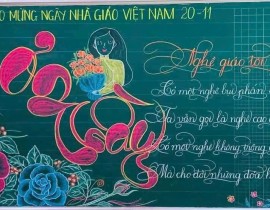 O MỪNG NGÀY NHÀ GIÁO VIỆT NAM 20-11
Nghề giáo tôi
Có một nghề bụi phấn
Ta vẫn gọi là nghề cao
Có một nghề không trồng
Mà cho đời những đóa h